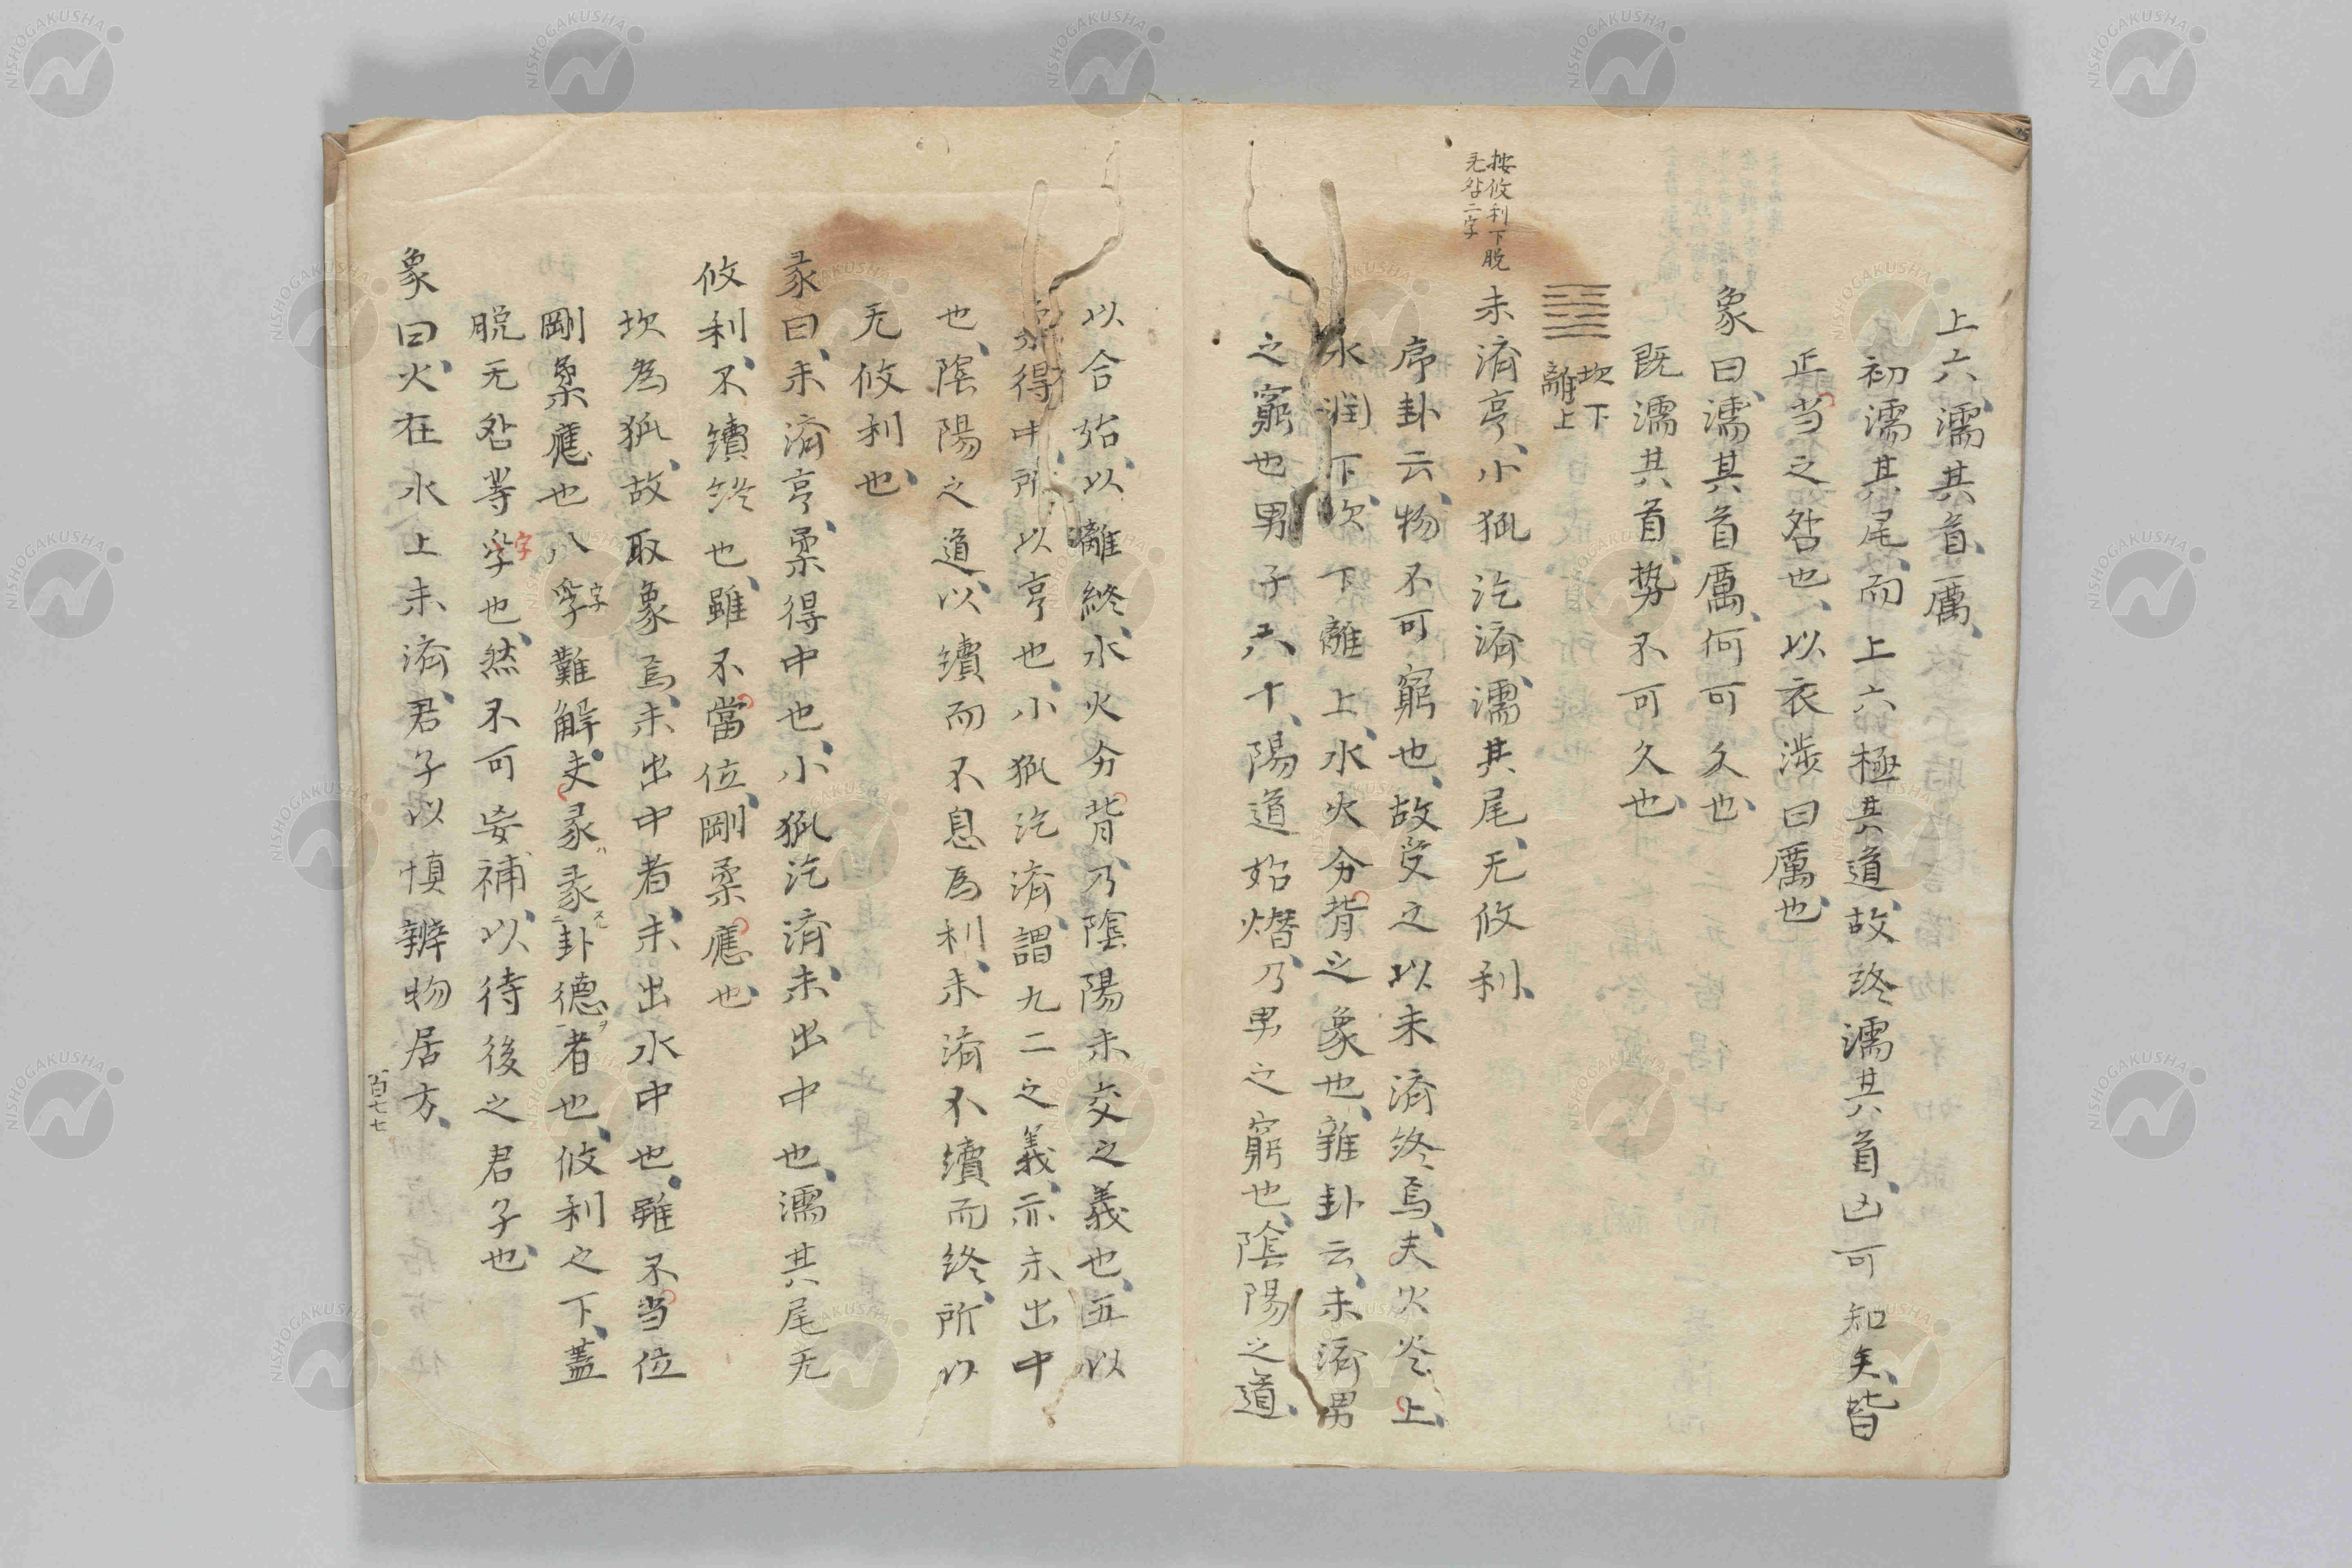 上六、濡其首、厲、
初濡其尾、而上六極其道、故終濡其首、凶可知矣、皆
正当之咎也、以衣渉曰厲也、
象曰、濡其首厲、何可久也、
既濡其首、勢不可久也、
坎下
離上
按攸利下脱
无咎二字
未濟亨、小狐汔濟、濡其尾、无攸利、
序卦云、物不可窮也、故受之以未濟終焉、夫火炎上、
水潤下、坎下離上、水火分背之象也、雜卦云、未濟男
之窮也、男子六十、陽道始熸、乃男之窮也、陰陽之道、
以合始、以離終、水火分背、乃陰陽未交之義也、五以
得中、所以亨也、小狐汔濟、謂九二之義、示未出中
也、陰陽之道、以續而不息為利、未濟不續而終、所以
无攸利也、
彖曰、未濟亨、柔得中也、小狐汔濟、未出中也、濡其尾无
攸利、不續終也、雖不當位、剛柔應也、
坎為狐、故取象焉、未出中者、未出水中也、雖不当位
剛柔應也、八字難解、夫彖ハ彖スル二卦德ヲ一者也、攸利之下、蓋
脱无咎等字也、然不可妄補、以待後之君子也、
象曰、火在水上未濟、君子以慎辨物居方、
百七七
NISHOGAKUSHA